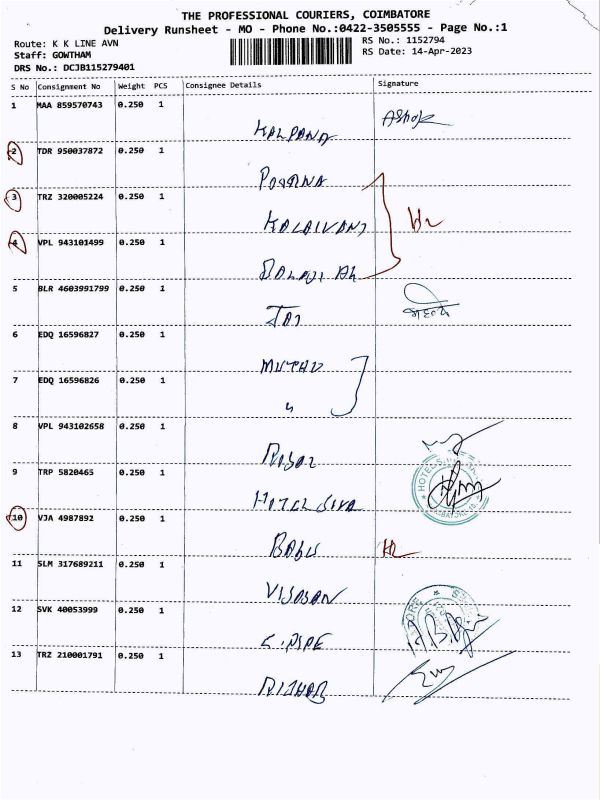 THE PROFESSIONAL COURIERS, COIMBATORE
Delivery Runsheet - MO - Phone No.:0422-3505555 - Page No.:1
Route: K K LINE AVN
RS No.: 1152794
Staff: GOWTHAM
RS Date: 14-Apr-2023
DRS No.: DCJB115279401
S No Consignment No Weight PCS Consignee Details Signature
1 MAA 859570743 0.250 1
KALPANA Ashok
2 TDR 950037872 0.250 1
3 TRZ 320005224 0.250 1
KALAIVANI
4 VPL 943101499 0.250 1
5 BLR 4603991799 0.250 1
6 EDQ 16596827 0.250 1
7 EDQ 16596826 0.250 1
8 VPL 943102658 0.250 1
9 TRP 5820465 0.250 1
HOTEL SIVA
10 VJA 4987892 0.250 1
BABU
11 SLM 317689211 0.250 1
12 SVK 40053999 0.250 1
13 TRZ 210001791 0.250 1